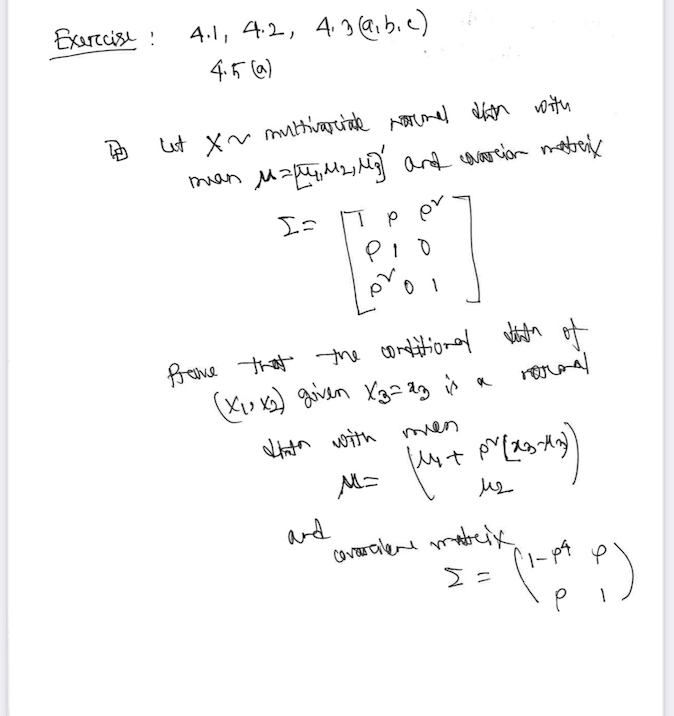 Exercise : 4.1, 4.2, 4.3 (a, b, c)
4.5 (a)
Let X ~ multivariate normal distn with
mean μ = [μ1, μ2, μ3]' and covarian matrix
Σ = [1 ρ ρ²
ρ 1 0
ρ² 0 1]
Prove that the conditional distn of
(X1, X2) given X3 = x3 is a normal
distn with mean
μ = (μ1 + ρ²(x3-μ3)
μ2)
and
covariance matrix
Σ = (1-ρ⁴ ρ
ρ 1)